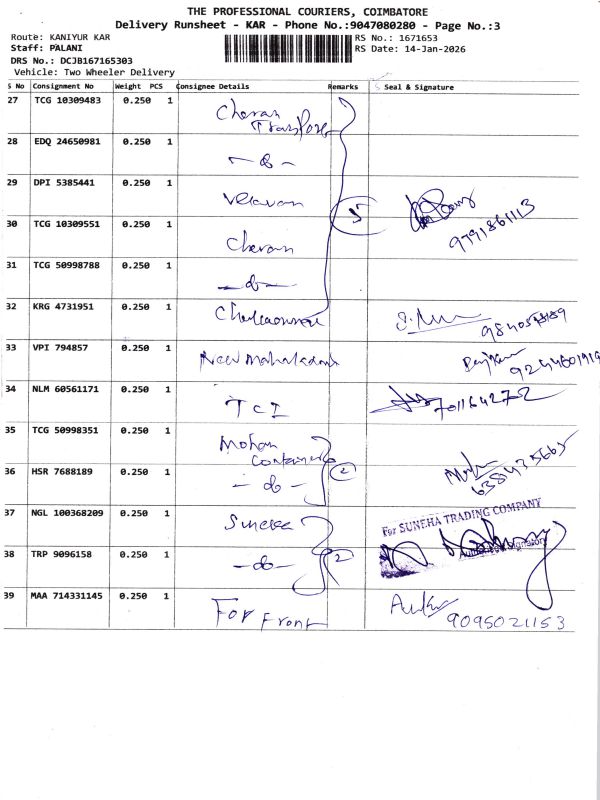 THE PROFESSIONAL COURIERS, COIMBATORE
Delivery Runsheet - KAR - Phone No.:9047080280 - Page No.:3
Route: KANIYUR KAR RS No.: 1671653
Staff: PALANI RS Date: 14-Jan-2026
DRS No.: DCJB167165303
Vehicle: Two Wheeler Delivery
S No Consignment No Weight PCS Consignee Details Remarks Seal & Signature
27 TCG 10309483 0.250 1 Cheran
Transport
28 EDQ 24650981 0.250 1 -do-
29 DPI 5385441 0.250 1 Velavan
5
9791861113
30 TCG 10309551 0.250 1 Cheran
31 TCG 50998788 0.250 1 -do-
32 KRG 4731951 0.250 1
33 VPI 794857 0.250 1 New Mahalaxmi
34 NLM 60561171 0.250 1 TCI
35 TCG 50998351 0.250 1 Mohan
Container
36 HSR 7688189 0.250 1 -do- 2
37 NGL 100368209 0.250 1 For SUNEHA TRADING COMPANY
38 TRP 9096158 0.250 1 -do- 2 Authorised Signatory
39 MAA 714331145 0.250 1 For Front
9095021153